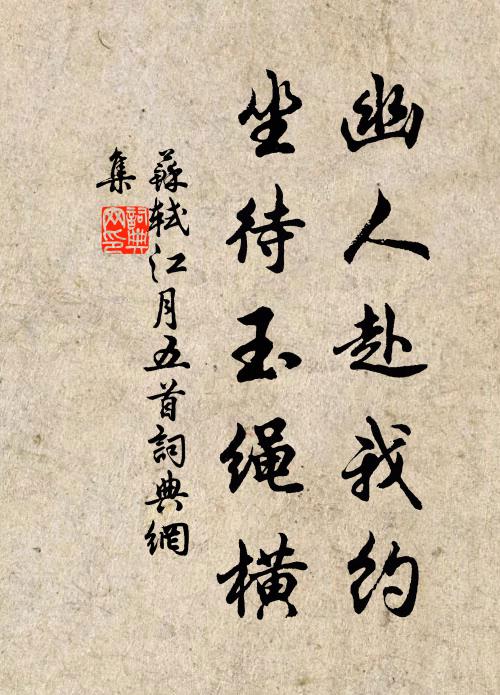 幽人赴我约
坐待玉绳横
蘇軾江月五首詞典網
集
詞典
网印